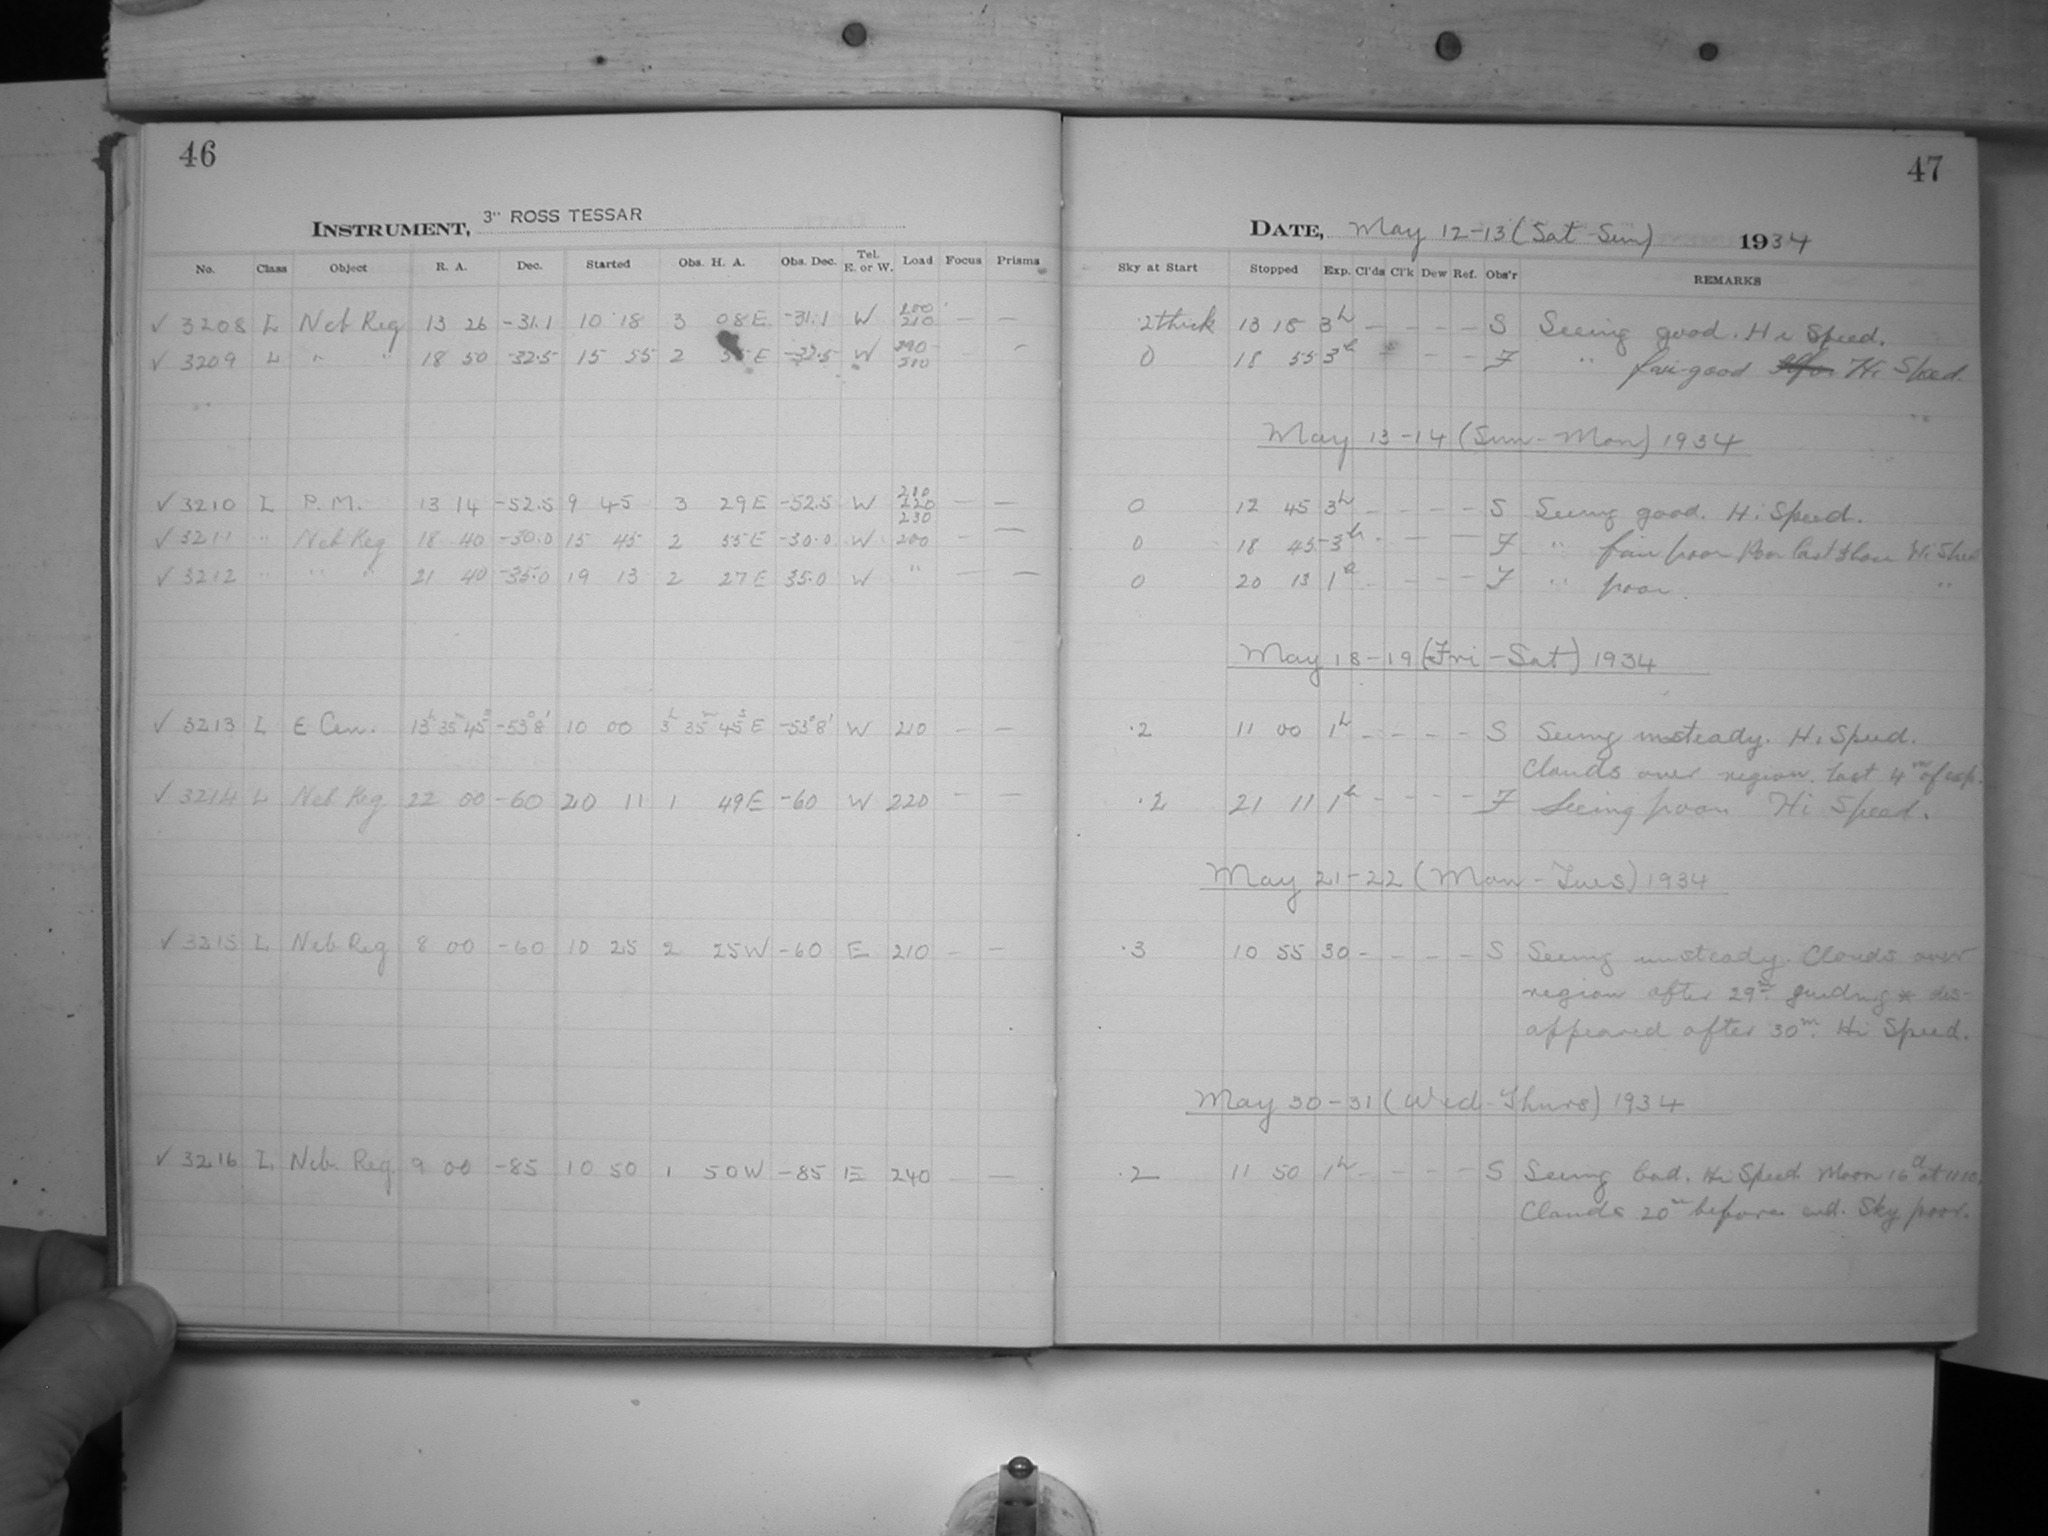 46
INSTRUMENT, 3" ROSS TESSAR
No. Class Object R. A. Dec. Started Obs. H. A. Obs. Dec. Tel. E. or W. Load Focus Prisms
✓ 3208 L Neb Reg 13 26 -31.1 10 18 3 08 E -31.1 W 210 — —
✓ 3209 L " " 18 50 -32.5 15 55 2 E -32.5 W —
✓ 3210 L P.M. 13 14 -52.5 9 45 3 29 E -52.5 W 210 220 230 — —
✓ 3211 " Neb Reg 18 40 -30.0 15 45 2 55 E -30.0 W 200 — —
✓ 3212 " " " 21 40 -35.0 19 13 2 27 E 35.0 W " — —
✓ 3213 L E Cen. 13h 35m 45s -53°8' 10 00 3h 35m 45s E -53°8' W 210 — —
✓ 3214 L Neb Reg 22 00 -60 20 11 1 49 E -60 W 220 — —
✓ 3215 L Neb Reg 8 00 -60 10 25 2 25 W -60 E 210 — —
✓ 3216 L Neb. Reg. 9 00 -85 10 50 1 50 W -85 E 240 — —
47
DATE, May 12-13 (Sat-Sun) 1934
Sky at Start Stopped Exp. Cl'ds Cl'k Dew Ref. Obs'r REMARKS
.2 thick 13 18 3h - - - - S Seeing good. Hi Speed.
0 18 55 3h - - - F " fair-good Hi Speed.
May 13-14 (Sun-Mon) 1934
0 12 45 3h - - - - S Seeing good. Hi Speed.
0 18 45 3h - - - - F " fair poor Poor last Hi Speed
0 20 13 1h - - - - F " poor. "
May 18-19 (Fri-Sat) 1934
.2 11 00 1h - - - - S Seeing unsteady. Hi Speed.
Clouds over region last 4m of exp.
.2 21 11 1h - - - - F Seeing poor Hi Speed.
May 21-22 (Mon-Tues) 1934
.3 10 55 30 - - - - S Seeing unsteady. Clouds over
region after 29m. guiding * dis-
appeared after 30m. Hi Speed.
May 30-31 (Wed-Thurs) 1934
.2 11 50 1h - - - - S Seeing bad. Hi Speed Moon 16d at 11 10.
Clouds 20m before end. Sky poor.